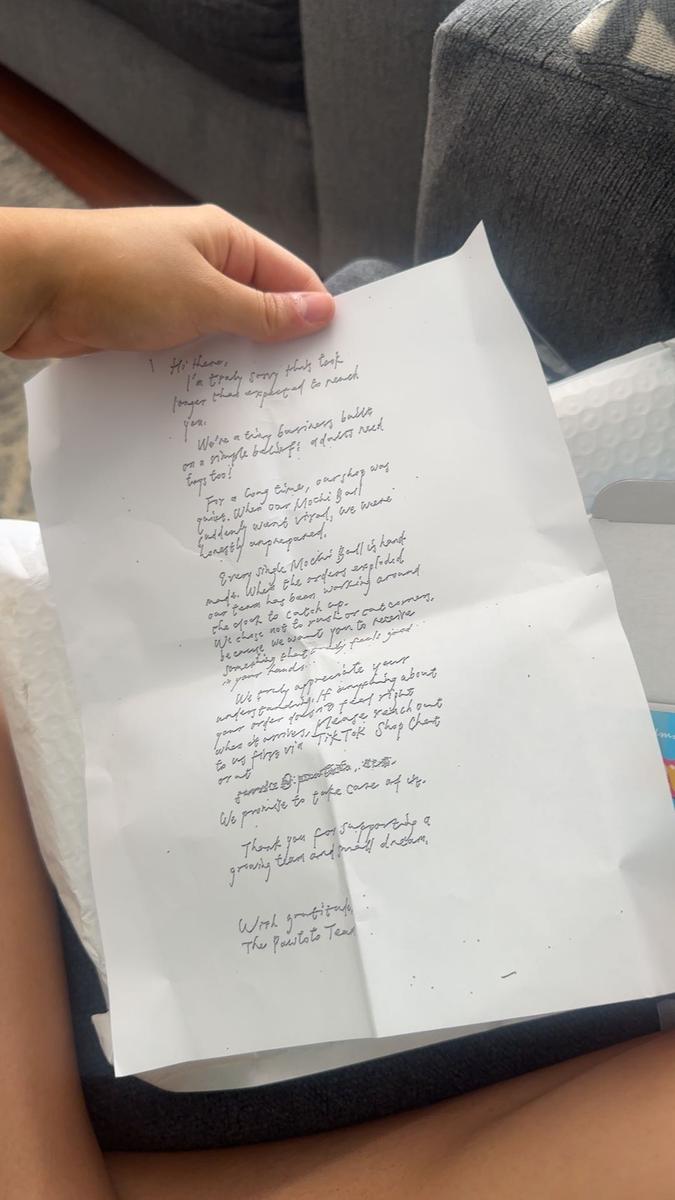 Hi there,
I'm truly sorry this took
longer than expected to reach
you.
We're a tiny business built
on a simple belief: adults need
toys too!
For a long time, our shop was
quiet. When our Mochi Ball
suddenly went viral, we were
honestly unprepared.
Every single Mochi Ball is hand
made. When the orders exploded
our team has been working around
the clock to catch up.
We chose not to rush or cut corners,
because we want you to receive
something that feels good
in your hands.
We truly appreciate your
understanding. If anything about
your order doesn't feel right
when it arrives, please reach out
to us first via TikTok Shop Chat
or at
We promise to take care of it.
Thank you for supporting a
growing team and small dream.
With gratitude,
The Pawtoto Team